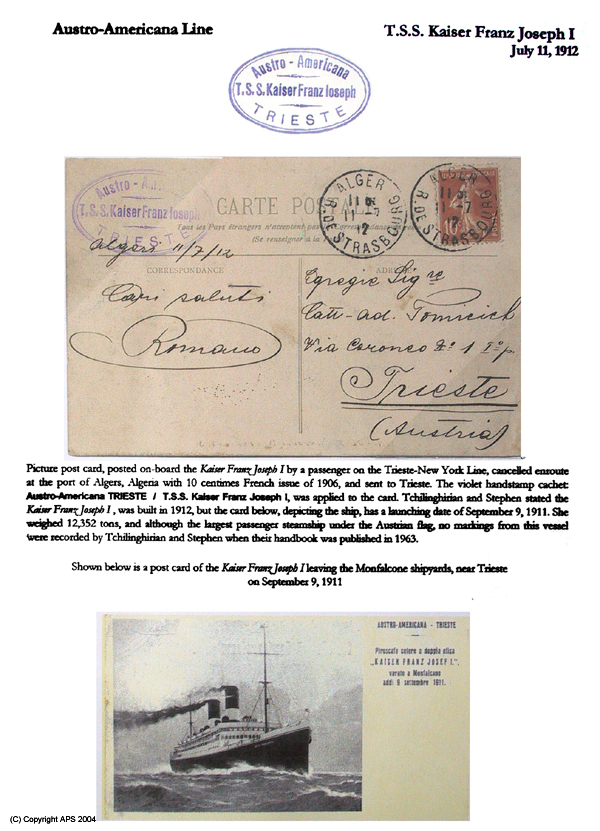 Austro-Americana Line
T.S.S. Kaiser Franz Joseph I
July 11, 1912
Austro - Americana
T.S.S. Kaiser Franz Ioseph
TRIESTE
Austro - Am
T.S.S. Kaiser Franz Ioseph
TRIESTE
CARTE POSTALE
Tous les Pays étrangers n'acceptent pas la Correspondance
(Se renseigner à la
ALGER
R. DE STRASBOURG
11 -7
12
ALGER
R. DE STRASBOURG
11 -7
12
10
Algeri 11/7/12
CORRESPONDANCE
ADRESSE
Cari saluti
Romano
Egregio Sigre
Catt-ad. Tomicich
Via Coroneo No 1 Io p.
Trieste
(Austria)
Picture post card, posted on-board the Kaiser Franz Joseph I by a passenger on the Trieste-New York Line, cancelled enroute
at the port of Algers, Algeria with 10 centimes French issue of 1906, and sent to Trieste. The violet handstamp cachet:
Austro-Americana TRIESTE / T.S.S. Kaiser Franz Joseph I, was applied to the card. Tchilinghirian and Stephen stated the
Kaiser Franz Joseph I , was built in 1912, but the card below, depicting the ship, has a launching date of September 9, 1911. She
weighed 12,352 tons, and although the largest passenger steamship under the Austrian flag, no markings from this vessel
were recorded by Tchilinghirian and Stephen when their handbook was published in 1963.
Shown below is a post card of the Kaiser Franz Joseph I leaving the Monfalcone shipyards, near Trieste
on September 9, 1911
AUSTRO-AMERICANA - TRIESTE
Piroscafo celere a doppia elica
„KAISER FRANZ JOSEF I.",
varato a Monfalcone
addì 9 settembre 1911.
(C) Copyright APS 2004